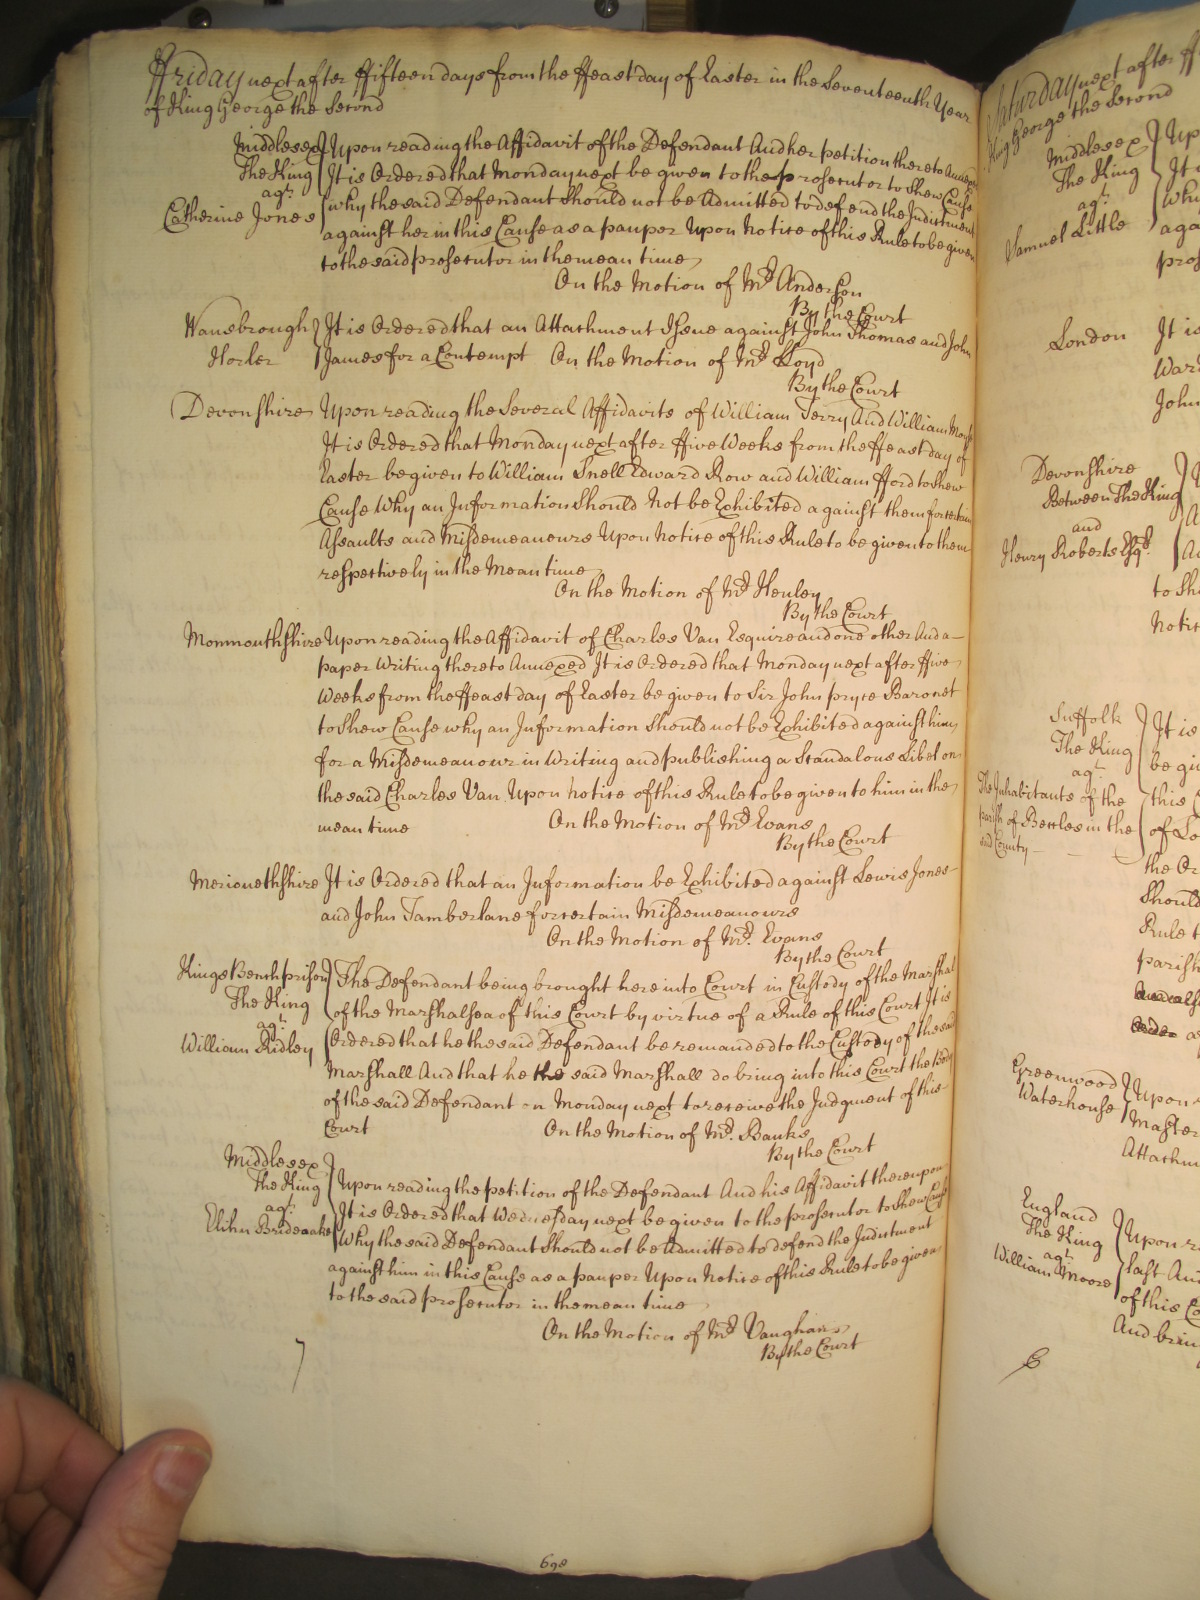 Friday next after ffifteen days from the ffeast day of Easter in the Seventeenth Year
of King George the Second
Middlesex
The King
agt.
Catherine Jones
Upon reading the Affidavit of the Defendant And her petition thereto Annexed
It is Ordered that Monday next be given to the prosecutor to Shew Cause
why the said Defendant Should not be Admitted to defend the Indictment
against her in this Cause as a pauper Upon Notice of this Rule to be given
to the said prosecutor in the mean time
On the Motion of Mr. Anderson
By the Court
Wansbrough
Horler
It is Ordered that an Attachment Issue against John Thomas and John
James for a Contempt On the Motion of Mr. Lloyd
By the Court
Devonshire Upon reading the Several Affidavits of William Terry And William
It is Ordered that Monday next after ffive Weeks from the ffeast day of
Easter be given to William Snell Edward Row and William fford to shew
Cause Why an Information Should Not be Exhibited against them for certain
Assaults and Misdemeanours Upon Notice of this Rule to be given to them
respectively in the Mean time
On the Motion of Mr. Henley
By the Court
Monmouthshire Upon reading the Affidavit of Charles Van Esquire and one other And a
paper Writing thereto Annexed It is Ordered that Monday next after ffive
Weeks from the ffeast day of Easter be given to Sir John Pryce Baronet
to Shew Cause why an Information Should not be Exhibited against him
for a Misdemeanour in Writing and publishing a Scandalous Libel on
the said Charles Van. Upon Notice of this Rule to be given to him in the
mean time On the Motion of Mr. Evans
By the Court
Merionethshire It is Ordered that an Information be Exhibited against Lewis Jones
and John Tamberlane for certain Misdemeanours
On the Motion of Mr. Evans
By the Court
Kings Bench prison
The King
agt.
William Ridley
The Defendant being brought here into Court in Custody of the Marshal
of the Marshalsea of this Court by virtue of a Rule of this Court It is
Ordered that he the said Defendant be remanded to the Custody of the said
Marshall And that he the said Marshall do bring into this Court the Body
of the said Defendant on Monday next to receive the Judgment of this
Court On the Motion of Mr. Banks
By the Court
Middlesex
The King
agt.
Elihu Brideoake
Upon reading the petition of the Defendant And his Affidavit thereupon
It is Ordered that Wednesday next be given to the prosecutor to Shew Cause
Why the said Defendant Should not be Admitted to defend the Indictment
against him in this Cause as a pauper Upon Notice of this Rule to be given
to the said prosecutor in the mean time
On the Motion of Mr. Vaughan
By the Court
698
Saturday next after
King George the Second
Middlesex
The King
agt.
Samuel Little
London It is
John
Devonshire
Between The King
and
Henry Roberts Esqr.
to Sh
Notic
Suffolk
The King
agt.
The Inhabitants of the
parish of Beccles in the
said County
It is
be giv
this
of Lo
the Or
Should
Rule t
parish
Greenwood
Waterhouse
Upon
Master
Attachm
England
The King
agt.
William Moore
Upon re
last And
of this Co
And brin